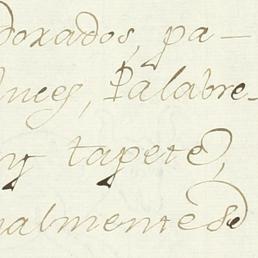 doxados, pa-
lneş, Palabre-
y tapete,
nalmente se